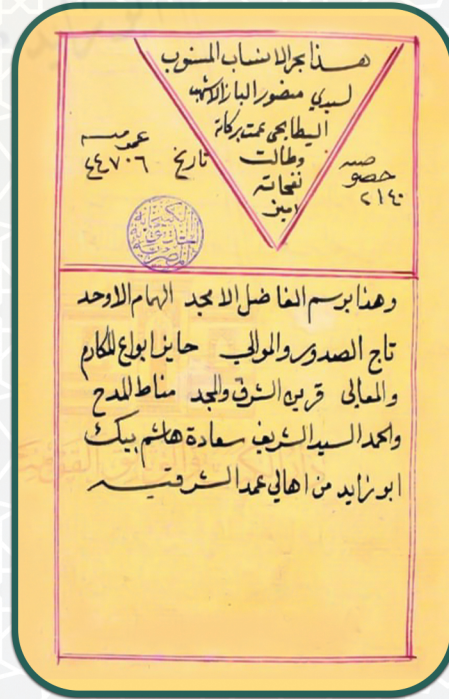 هذا بحر الانساب المنسوب
لسيدي منصور الباز الاشهب
البطايحى عمت بركاته
وطالت
نفحاته
امين
خصوصيه
٢١٤٠
تاريخ
عموميه
٤٤٧٠٦
وهذا برسم الفاضل الامجد الهمام الاوحد
تاج الصدور والموالي حايز انواع المكارم
والمعالى قرين الشرف والمجد مناط المدح
والحمد السيد الشريف سعادة هاشم بيك
ابو زايد من اهالي عمد الشرقيه